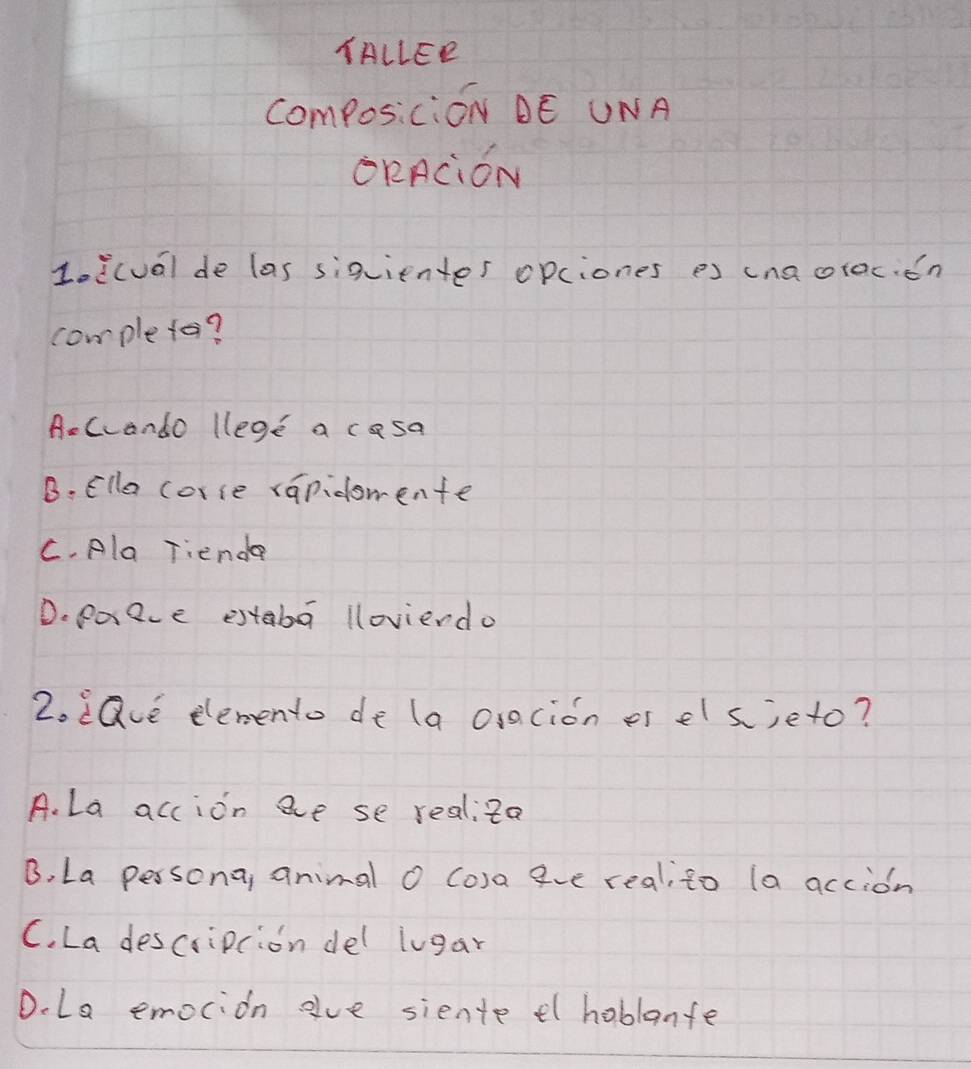 TALLER
COMPOSICIÓN DE UNA
ORACIÓN
1. ¿cuál de las siguientes opciones es una oración
completa?
A. Cuando llegé a casa
B. Ella corre rápidamente
C. A la Tienda
D. porque estabá lloviendo
2. ¿Qué elemento de la oración es el sujeto?
A. La acción que se realiza
B. La persona, animal o cosa que realizo la acción
C. La descripción del lugar
D. La emoción que siente el hablante